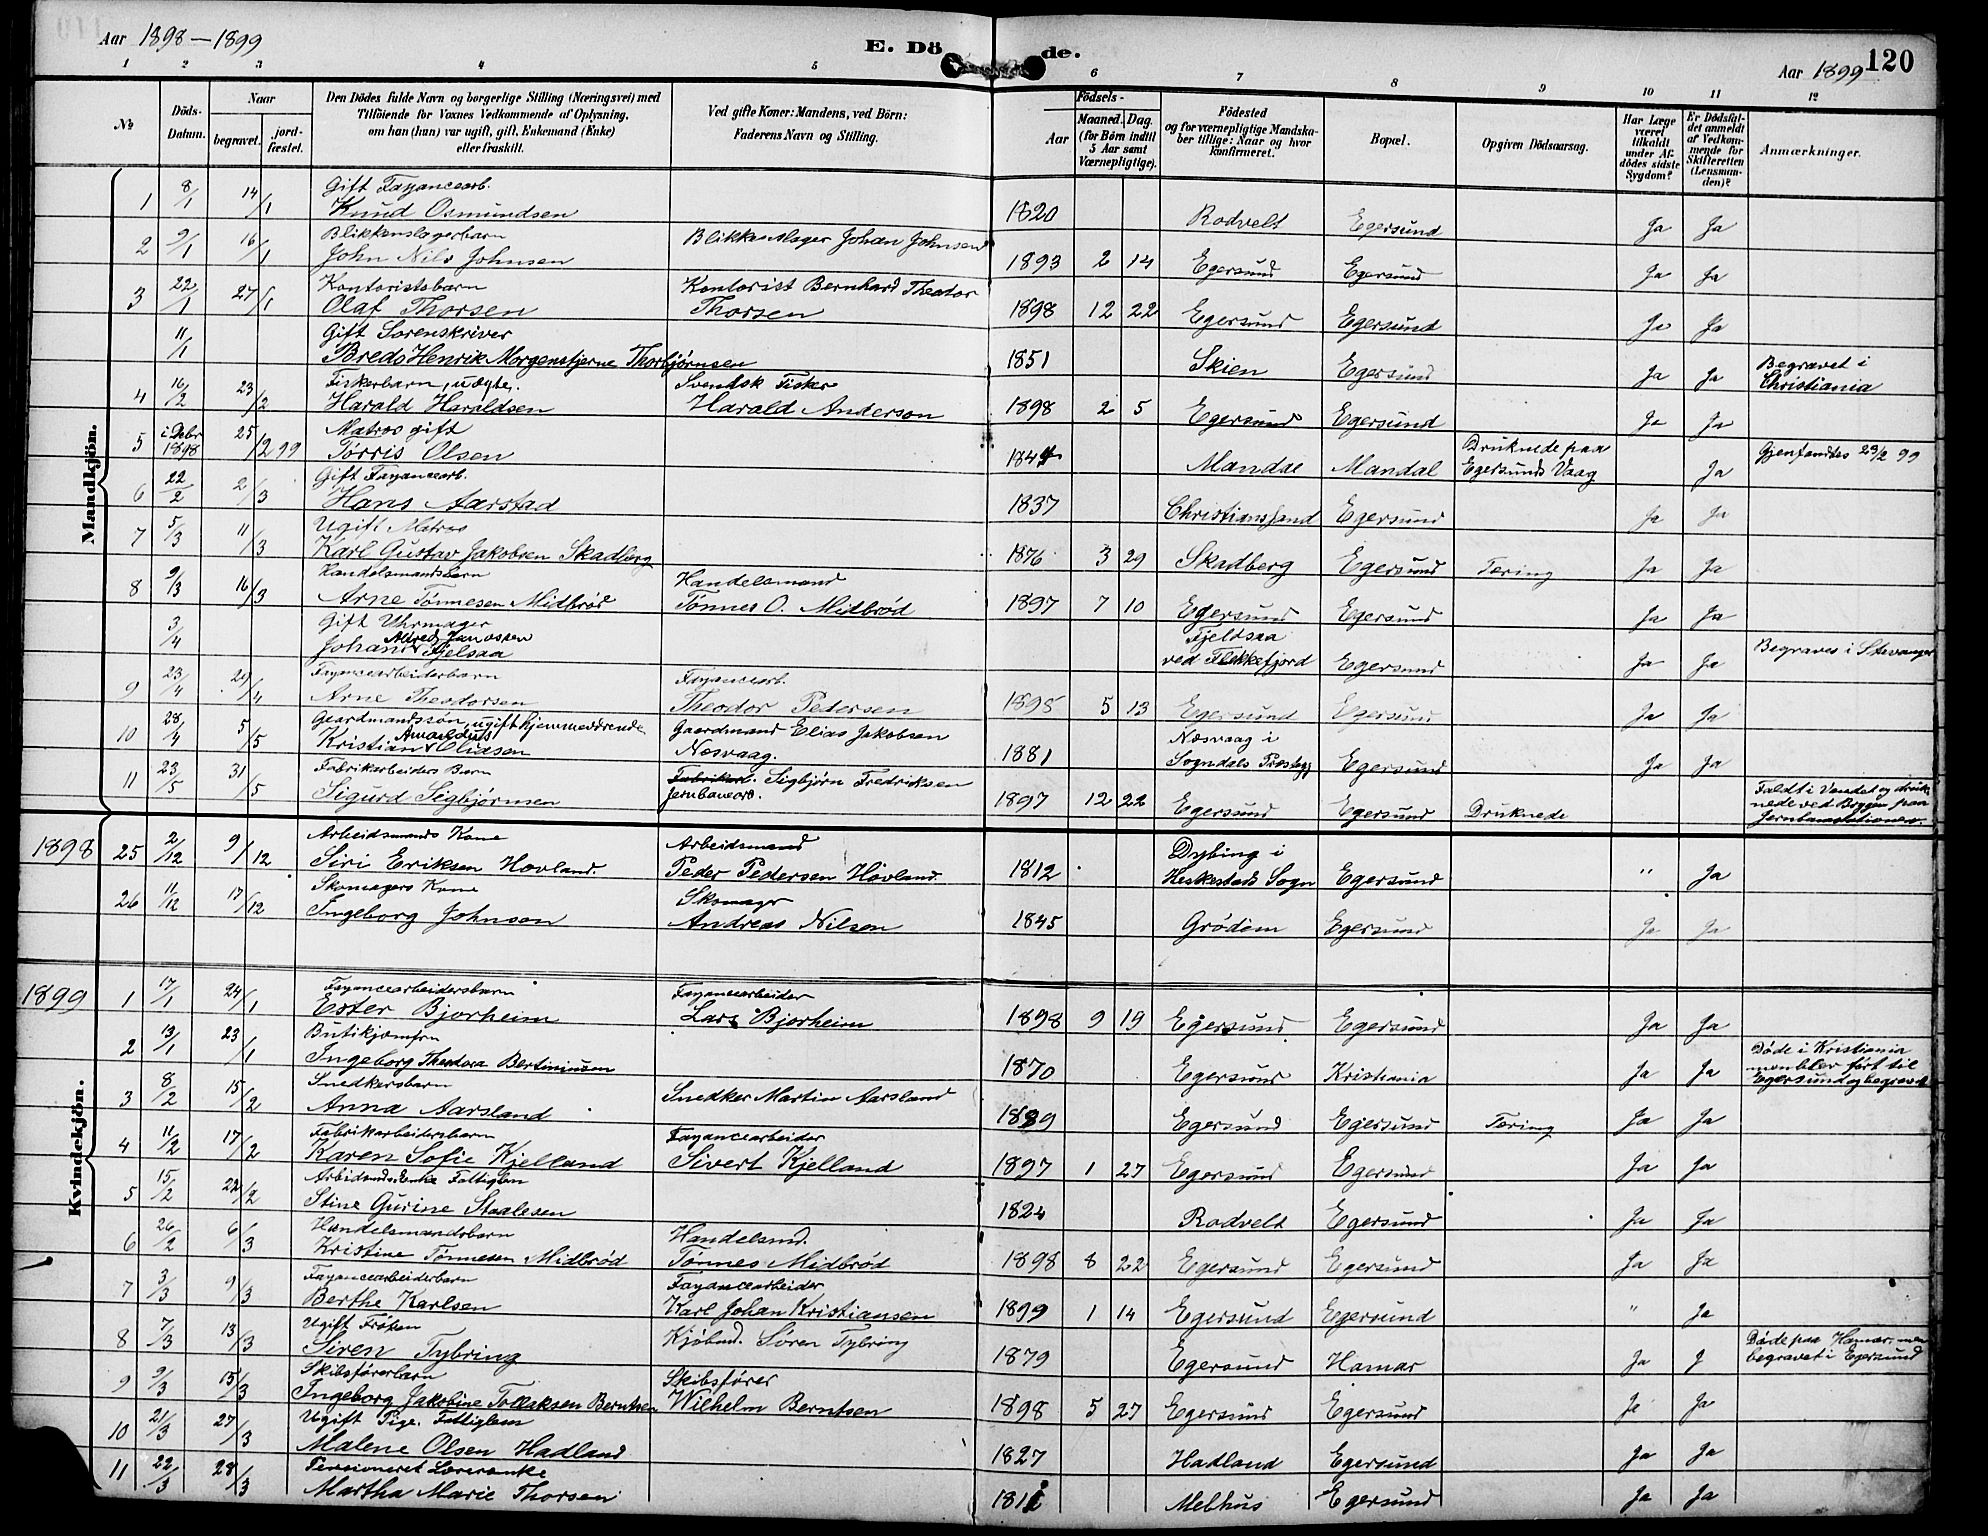 Aar 1898 — 1899 E. Dö de. Aar 1899 120
1 2 3 4 5 6 7 8 9 10 11 12
№ Döds-Datum. Naar begravet. jordfæstet. Den Dödes fulde Navn og borgerlige Stilling (Næringsvei) med Tilföiende for Voxnes Vedkommende af Oplysning, om han (hun) var ugift, gift, Enkemand (Enke) eller fraskilt. Ved gifte Koner: Mandens, ved Börn: Faderens Navn og Stilling. Födsels- Aar Maaned. Dag. (for Börn indtil 5 Aar samt Værnepligtige). Födested og for værnepligtige Mandskaber tillige: Naar og hvor konfirmeret. Bopæl. Opgiven Dödsaarsag. Har Læge været tilkaldt under Afdödes sidste Sygdom? Er Dödsfaldet anmeldt af Vedkommende for Skifteretten (Lensmanden)? Anmærkninger.
Mandkjön.
1 8/1 14/1 Gift Fayancearb.
Knud Osmundsen 1820 Rodvelt Egersund Ja Ja
2 9/1 16/1 Blikkenslagerbarn Blikkenslager Johan Johnsen
John Nils Johnsen 1893 2 14 Egersund Egersund Ja Ja
3 22/1 27/1 Kontoristsbarn Kontorist Bernhard Theodor
Olaf Thorsen Thorsen 1898 12 22 Egersund Egersund Ja Ja
11/1 Gift Sorenskriver
Bredo Henrik Morgenstjerne Thorbjørnsen 1851 Skien Egersund Ja Ja Begravet i Christiania
4 16/2 23/2 Fiskerbarn, uægte. Svensk Fisker
Harald Haraldsen Harald Anderson 1898 2 5 Egersund Egersund Ja Ja
5 i Debr 1898 25/2 99 Matros gift
Tørris Olsen Mandal Mandal Druknede paa Egersunds Vaag Ja Gjenfandtes 23/2 99
6 22/2 2/3 Gift Fayancearb.
Hans Aarstad 1837 Christianssand Egersund Ja Ja
7 5/3 11/3 Ugift Matros
Karl Gustav Jakobsen Skadberg 1876 3 29 Skadberg Egersund Tæring Ja Ja
8 9/3 16/3 Handelsmandsbarn Handelsmand
Arne Tønnesen Midbrød Tønnes O. Midbrød 1897 7 10 Egersund Egersund Ja Ja
3/4 Gift Uhrmager
Johan Alfred Janossen Fjelsaa Fjeldsaa ved Flekkefjord Egersund Ja Ja Begraves i Stavanger
9 23/4 29/4 Fayancearbeiderbarn Fayancearb.
Arne Theodorsen Theodor Pedersen 1898 5 13 Egersund Egersund Ja Ja
10 28/4 5/5 Gaardmandssøn, ugift hjemmeværende Gaardmand Elias Jakobsen
Kristian Amandus Eliasen Næsvaag. 1881 Næsvaag i Sogndals Præstegj Egersund Ja Ja
11 23/5 31/5 Fabrikarbeiders Barn Fabrikarb. Sigbjørn Fredriksen
Sigurd Sigbjørnsen Jernbanearb. 1897 12 22 Egersund Egersund Druknede Faldt i Vandet og druknede ved Bryggen paa Jernbanestationen.
1898 25 2/12 9/12 Arbeidsmands Kone Arbeidsmand
Siri Eriksen Hovland. Peder Pedersen Hovland. 1812 Dybing i Heskestads Sogn Egersund " Ja
26 11/12 17/12 Skomagers Kone Skomager
Ingeborg Johnson Andreas Nilsen 1845 Grødem Egersund Ja Ja
Kvindekjön.
1899 1 17/1 24/1 Fayancearbeidersbarn Fayancearbeider
Ester Bjorheim Lars Bjorheim 1898 9 19 Egersund Egersund Ja Ja
2 13/1 23/1 Butikjomfru
Ingeborg Theodora Bertiniusen 1870 Egersund Kristiania Ja Ja Døde i Kristiania men blev ført til Egersund og begravet
3 8/2 15/2 Snedkersbarn Snedker Martin Aarsland
Anna Aarsland 1889 Egersund Egersund Tæring Ja Ja
4 11/2 17/2 Fabrikarbeidersbarn Fayancearbeider
Karen Sofie Kjelland Sivert Kjelland 1897 1 27 Egersund Egersund Ja Ja
5 15/2 22/2 Arbeidsmds. Enke Fattiglem
Stine Gurine Staalesen 1824 Rodvelt Egersund Ja Ja
6 26/2 6/3 Handelsmandsbarn Handelsmd.
Kristine Tønnesen Midbrød Tønnes Midbrød 1898 8 22 Egersund Egersund Ja Ja
7 3/3 9/3 Fayancearbeiderbarn Fayancearbeider
Berthe Karlsen Karl Johan Kristiansen 1899 1 14 Egersund Egersund " Ja
8 7/3 13/3 Ugift Frøken Kjøbmd. Søren Tybring
Siren Tybring 1879 Egersund Hamar Ja J Døde paa Hamar, men begravet i Egersund
9 9/3 15/3 Skibsførerbarn Skibsfører
Ingeborg Jakobine Berntsen Wilhelm Berntsen 1898 5 27 Egersund Egersund Ja Ja
10 21/3 27/3 Ugift Pige. Fattiglem
Malene Olsen Hadland 1827 Hadland Egersund Ja Ja
11 22/3 28/3 Pensioneret Lærerenke
Martha Marie Thorsen Melhus Egersund Ja Ja